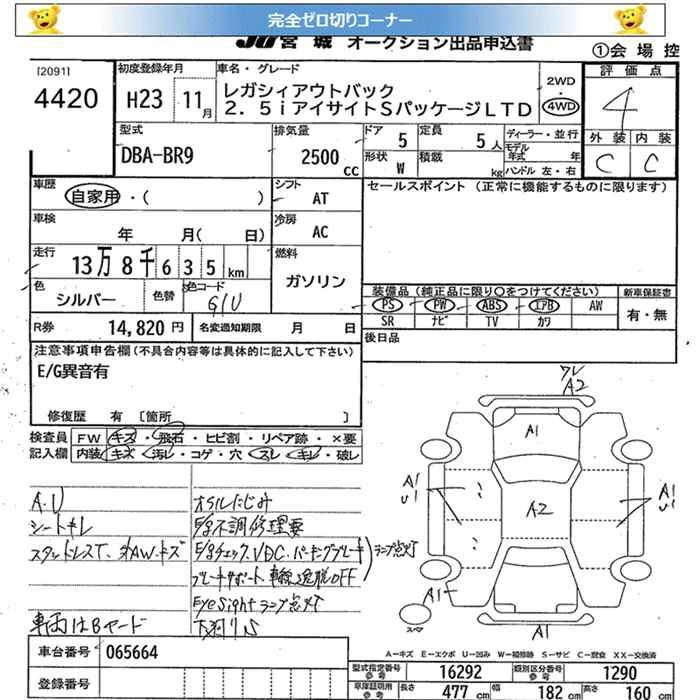 完全ゼロ切りコーナー
JU宮城 オークション出品申込書
①会場控
[2091]
4420
初度登録年月
H23 11月
車名・グレード
レガシィアウトバック
2.5iアイサイトSパッケージLTD
2WD
・
4WD
評価点
4
外装 内装
C C
型式
DBA-BR9
排気量
2500
cc
ドア 5
定員 5人
形状 W
積載 kg
ディーラー・並行
モデル年式 年
ハンドル 左・右
車歴
自家用・( )
シフト
AT
セールスポイント (正常に機能するものに限ります)
車検
年 月( 日)
冷房
AC
走行
13万8千635km
燃料
ガソリン
色
シルバー
色替
色コード
G1U
装備品(純正品に限り○をつけてください)
新車保証書
PS PW ABS エアB AW
有・無
SR ナビ TV カワ
R券 14,820円
名変通知期限 月 日
後日品
注意事項申告欄(不具合内容等は具体的に記入して下さい)
E/G異音有
修復歴 有 [箇所 ]
検査員記入欄
FW キズ・飛石・ヒビ割・リペア跡・×要
内装 キズ・汚レ・コゲ・穴・スレ・キレ・破レ
A.U
シートキレ
オイルにじみ
E/g不調修理要
E/gチェック、VDC、パーキングブレーキ
ランプ点灯
EyeSightランプ点灯
下廻りS
車両はBヤード
ワレ
A2
A1
A1
U1
A2
A1
U1
A1
A1
スペア
A=キズ E=エクボ U=凹み W=補修跡 S=サビ C=腐食 XX=交換済
車台番号 065664
登録番号
型式指定番号 参考 16292
類別区分番号 参考 1290
車庫証明用 参考 長さ 477cm 幅 182cm 高さ 160cm